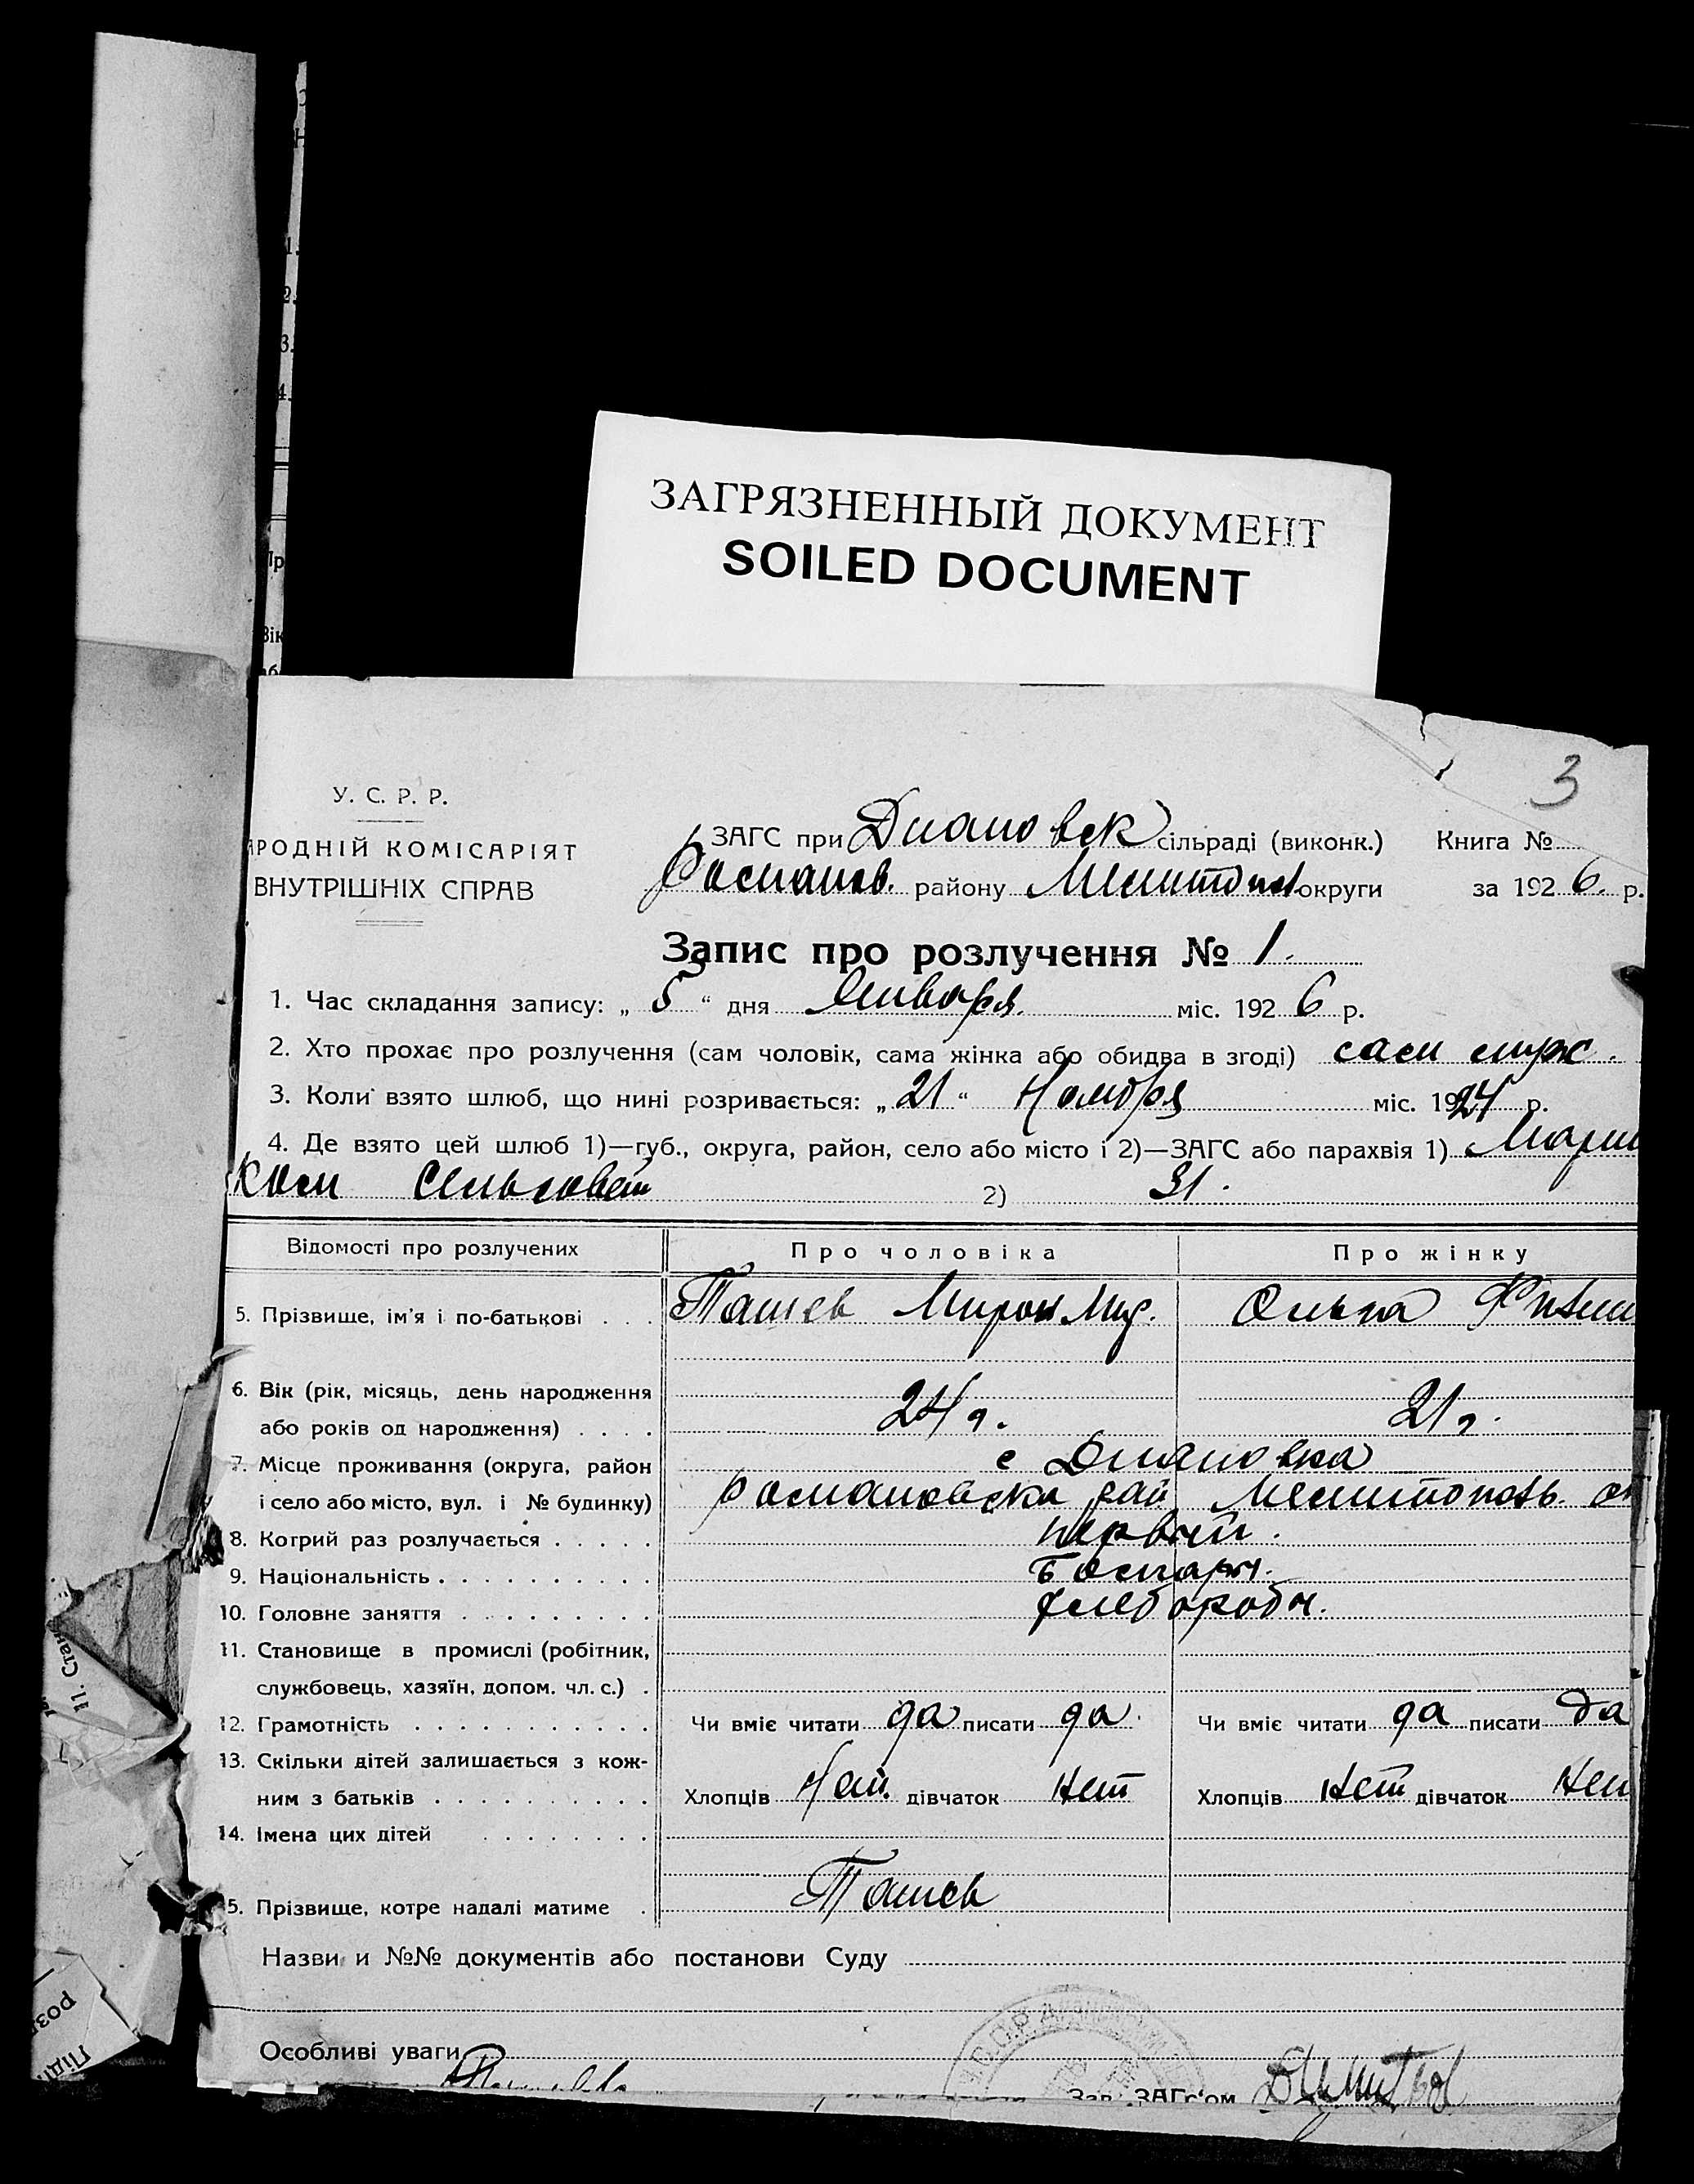 ЗАГРЯЗНЕННЫЙ ДОКУМЕНТ
SOILED DOCUMENT
3
У. С. Р. Р.
РОДНІЙ КОМІСАРІЯТ
ВНУТРІШНІХ СПРАВ
ЗАГС при Диановск сільраді (виконк.) Книга №
Романов. району Мелитопол округи за 1926. р.
Запис про розлучення № 1.
1. Час складання запису: „ 5 “ дня Января. міс. 1926 р.
2. Хто прохає про розлучення (сам чоловік, сама жінка або обидва в згоді) сам муж.
3. Коли взято шлюб, що нині розривається: „ 21 “ Ноября міс. 1924 р.
4. Де взято цей шлюб 1)—губ., округа, район, село або місто і 2)—ЗАГС або парахвія 1)
ком Сельсовет 2) 31.
Відомості про розлучених Про чоловіка Про жінку
5. Прізвище, ім'я і по-батькові . . . Ташев Мирон Ольга
6. Вік (рік, місяць, день народження
або років од народження) . . . . 24 г. 21 г.
7. Місце проживання (округа, район с Диановка
і село або місто, вул. і № будинку) Романовска рай Мелитополь.
8. Котрий раз розлучається . . . . . первый.
9. Національність . . . . . . . . . . Болгары.
10. Головне заняття . . . . . . . . . хлеборобы.
11. Становище в промислі (робітник,
службовець, хазяїн, допом. чл. с.) .
12. Грамотність . . . . . . . . . . . Чи вміє читати да писати да. Чи вміє читати да писати да
13. Скільки дітей залишається з кож-
ним з батьків . . . . . . . . . . Хлопців Нет. дівчаток нет Хлопців нет дівчаток нет
14. Імена цих дітей . . . . . . . .
5. Прізвище, котре надалі матиме . Ташев
Назви и №№ документів або постанови Суду
Особливі уваги
Зав. ЗАГс'ом